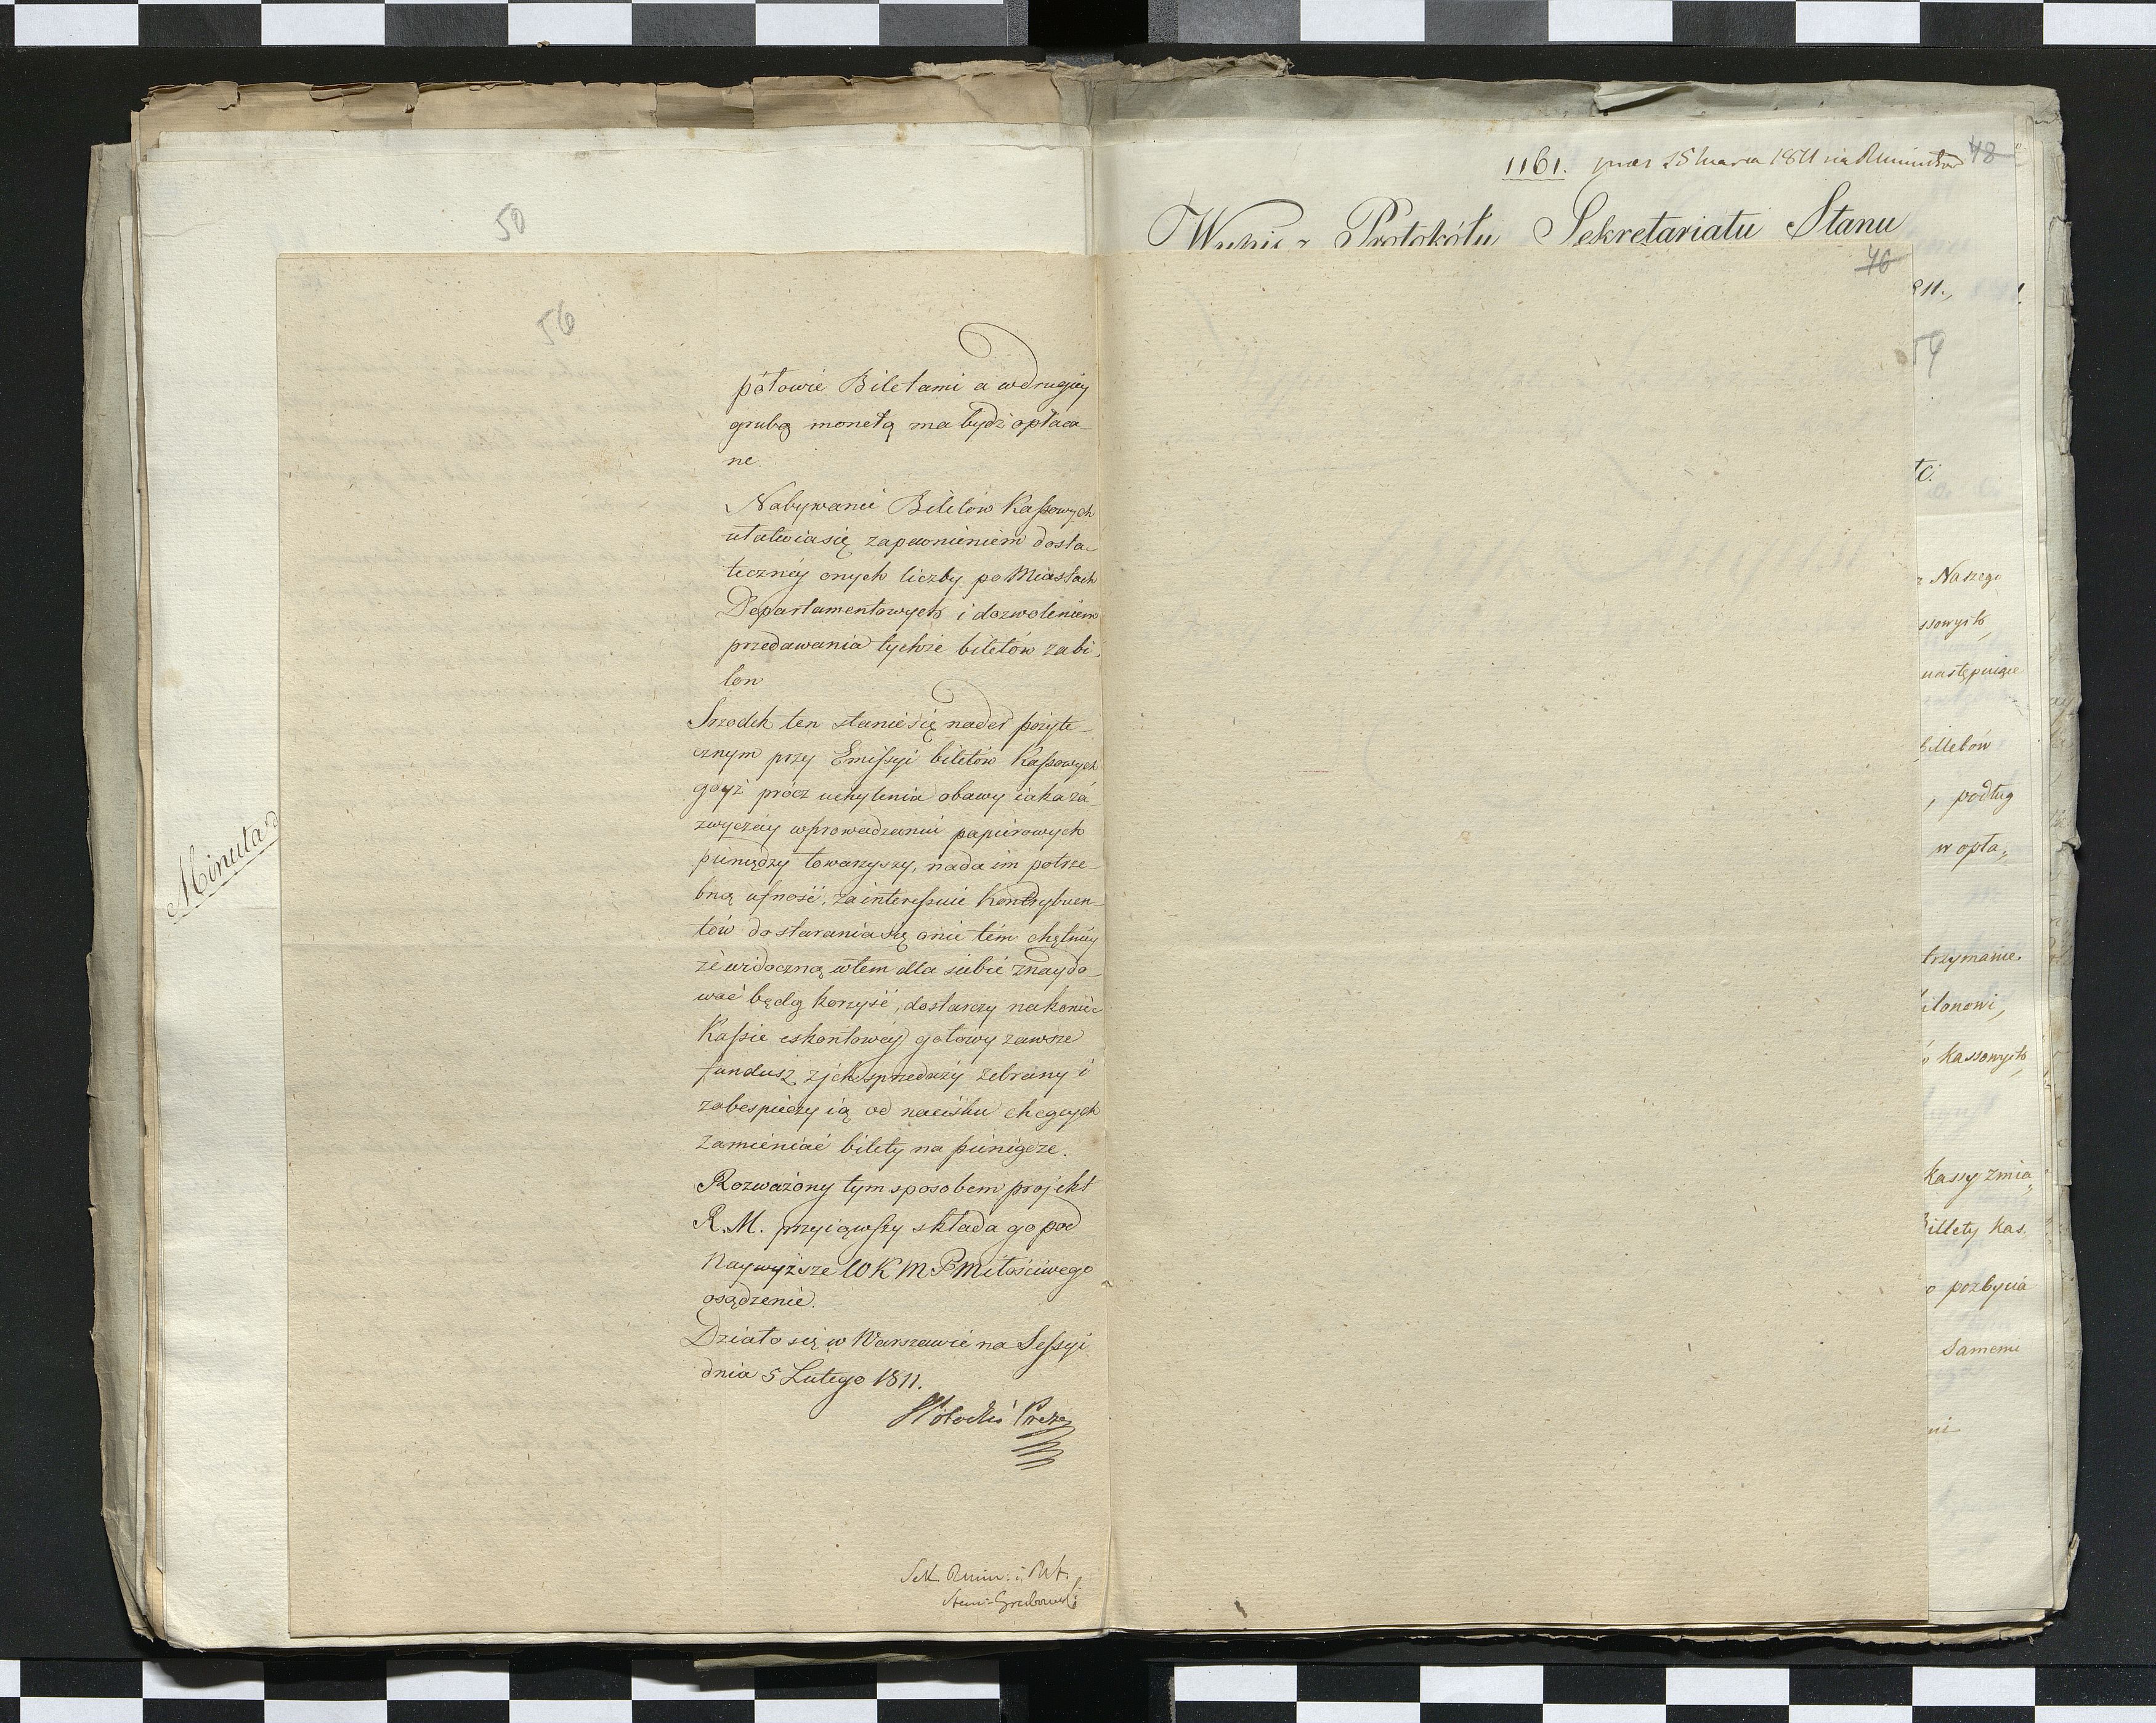 50
56
połowie Biletami a w drugiey
grubą monetą ma bydź opłaca-
ne.
Nabywanie Biletów Kassowych
ułatwia się zapewnieniem dosta-
teczney onych liczby po Miastach
Departamentowych i dozwoleniem
przedawania tychże biletów za bi-
lon
Srzodek ten stanie się nader pożyte-
cznym przy Emissyi biletów Kassowych
gdyż prócz uchylenia obawy iaka za-
zwyczay wprowadzaniu papierowych
pieniędzy towarzyszy, nada im potrze-
bną ufność, zainteressuie Kontrybuen-
tów do starania się o nie tém chętniey
że widoczną w tem dla siebie znaydo-
wać będą korzyść, dostarczy nakoniec
Kassie eskontowey gotowy zawsze
fundusz z ich sprzedaży zebrany i
zabespieczy ią od nacisku chcących
zamieniać bilety na pieniądze.
Rozważony tym sposobem projekt
R. M. przyiąwszy składa go pod
Naywyższe WKM P Miłościwego
osądzenie.
Działo się w Warszawie na Sessyi
dnia 5 Lutego 1811.
Potocki Prezes
Sek. Rmin: i Rst.
Grabowski
Minuta
1161. 1811 48
Protokółu Sekretariatu Stanu
46
811.,
54
Naszego
ssowych,
następuiące
billetów
, podług
w opła„
trzymanie
ilonowi,
kassowych,
kassy zmia„
Billety kas.
o pozbycia
samemi